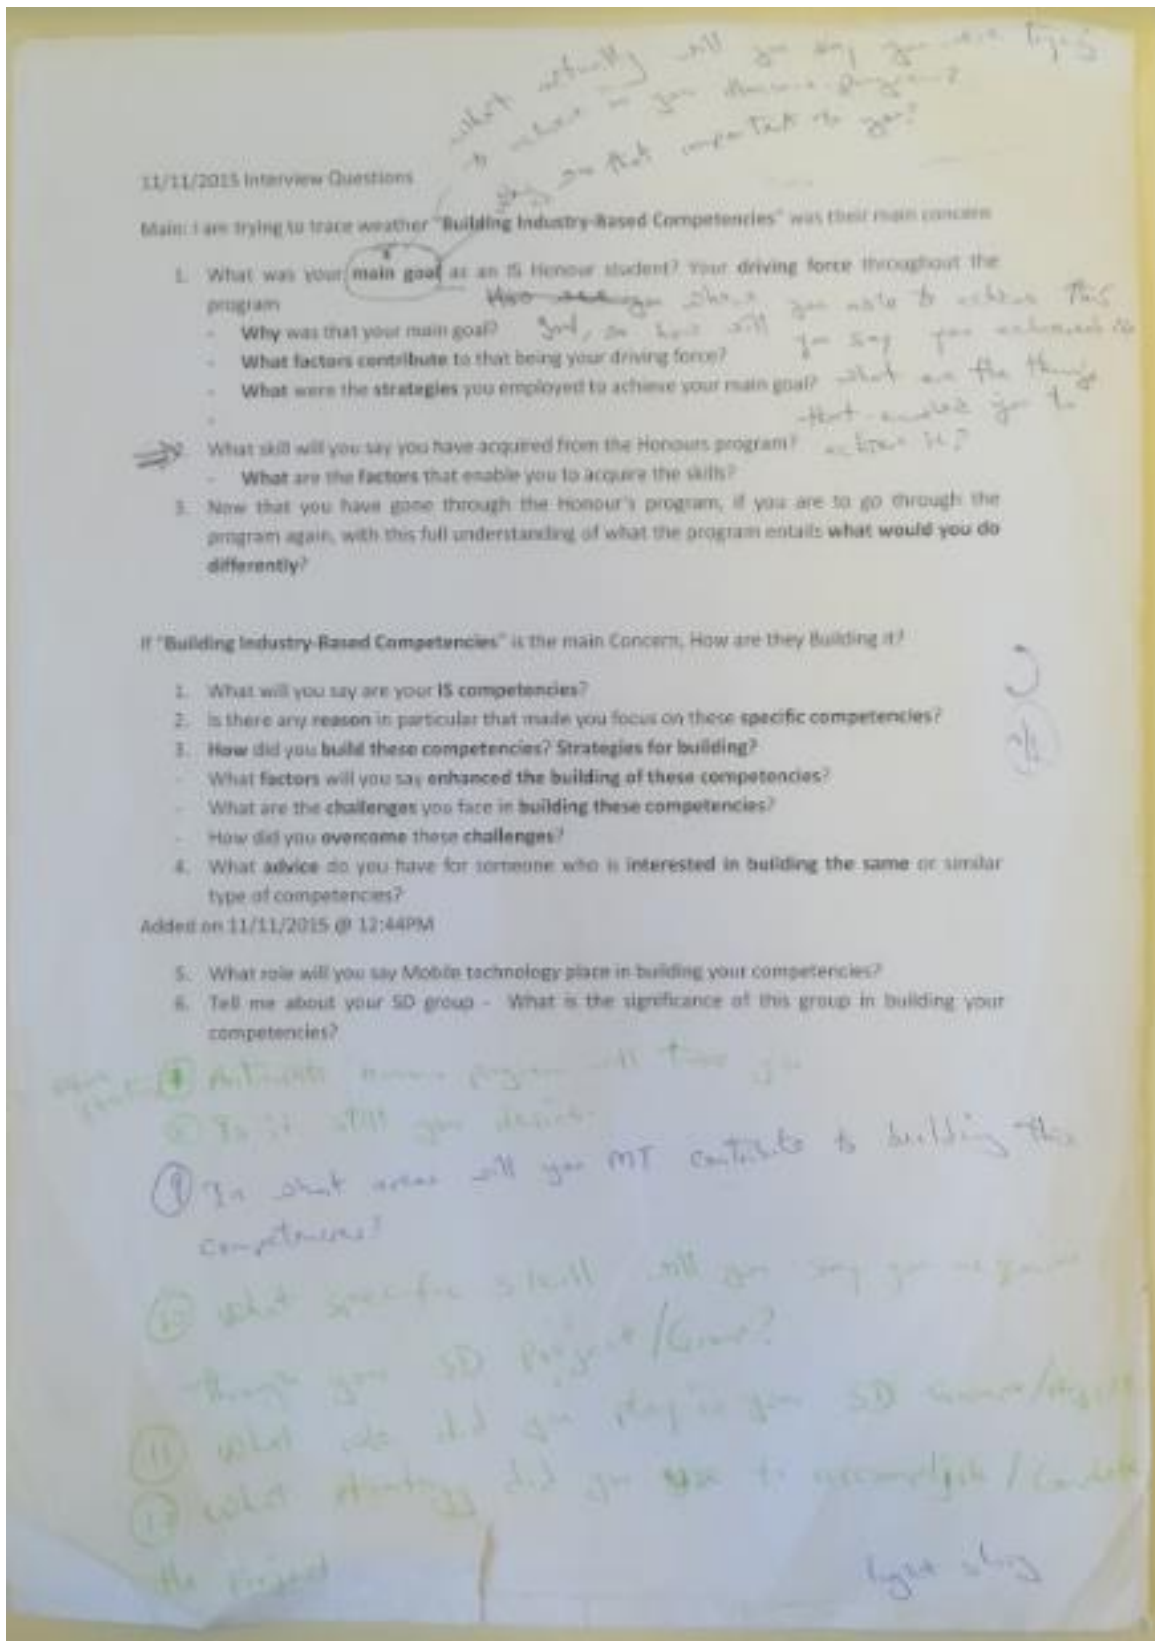 What actually will you say you were trying
to achieve in your Honours program?
Why was that important to you?
11/11/2015 Interview Questions
Main: I am trying to trace weather "Building Industry-Based Competencies" was their main concern
1. What was your main goal as an IS Honour student? Your driving force throughout the
program
you able to achieve this
- Why was that your main goal? goal, so how will you say you
- What factors contribute to that being your driving force?
- What were the strategies you employed to achieve your main goal? what are the things
that enabled you to
achieve it?
2. What skill will you say you have acquired from the Honours program?
- What are the factors that enable you to acquire the skills?
3. Now that you have gone through the Honour's program, if you are to go through the
program again, with this full understanding of what the program entails what would you do
differently?
If "Building Industry-Based Competencies" is the main Concern, How are they Building it?
1. What will you say are your IS competencies?
2. Is there any reason in particular that made you focus on these specific competencies?
3. How did you build these competencies? Strategies for building?
- What factors will you say enhanced the building of these competencies?
- What are the challenges you face in building these competencies?
- How did you overcome these challenges?
4. What advice do you have for someone who is interested in building the same or similar
type of competencies?
Added on 11/11/2015 @ 12:44PM
5. What role will you say Mobile technology place in building your competencies?
6. Tell me about your SD group - What is the significance of this group in building your
competencies?
program will
Is it still your desire
9 In what areas will your MT contribute to building this
competencies?
10 What specific skill will you say you
through your SD Project/Group?
11 What role did you play in your SD Group/Project
12 What strategy did you use to accomplish/Complete
the project